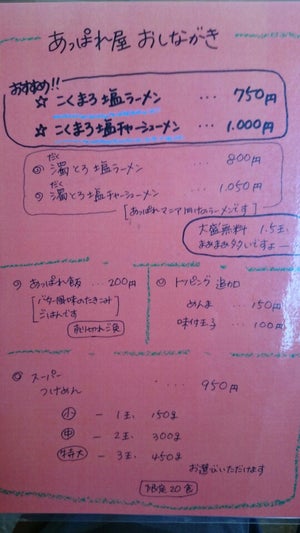 あっぱれ屋 おしながき
おすすめ!!
☆ こくまろ塩ラーメン ... 750円
☆ こくまろ塩チャーシューメン ... 1.000円
だく
◎ 濁とろ塩ラーメン ... 800円
だく
◎ 濁とろ塩チャーシューメン ... 1.050円
[あっぱれマニア向けのラーメンです]
大盛無料 1.5玉
ですよー
◎ あっぱれ飯 ... 200円
[バター風味のたきこみ
ごはんです]
売り切れご免
◎ トッピング 追加
めんま ... 150円
味付玉子 ... 100円
◎ スーパー
つけめん .... 950円
小 - 1玉 150g
中 - 2玉 300g
特大 - 3玉 450g
お選びいただけます
限定20食